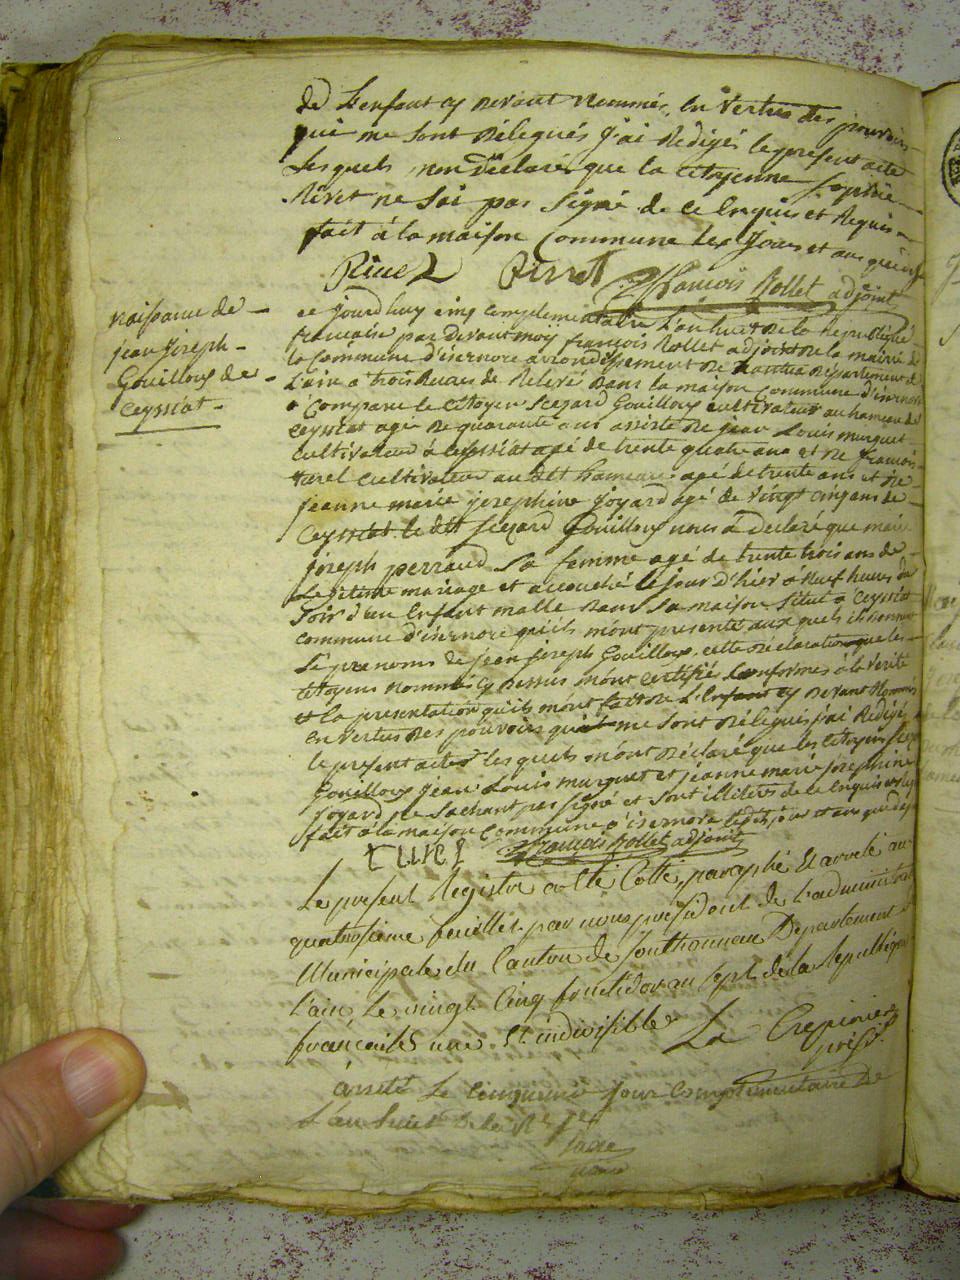 de L'enfant cy devant nommés, En Vertus des pouvoirs
qui me sont délégués J'ai Redigés le present acte
Lesquels mon déclaré que la Citoyenne Sophie
Rivet ne Sai pas Signé de ce Enquis et Requis
fait à la maison Commune les Jours et ans que dessus
Rivet Pirret François Rollet adjoint
naissance de
jean joseph
Gouilloux de
Ceyssiat
ce jourd'huy cinq complementaire L'an huit de la Republique
francaise par devant moy françois Rollet adjoint de la mairie de
la Commune d'isernore arondissement de Nantua département de
L'ain a trois heures de Relevé dans la maison Commune d'isernore
a Comparu le Citoyen Gouilloux cultivateur au hameau de
Ceyssiat agé de quarante ans assisté de jean Louis murguet
cultivateur à Ceyssiat agé de trente quatre ans et de françois
turel cultivateur au dit hameau agé de trente ans et de
jeanne marie josephine Joyard agé de vingt cinq ans de
Ceyssiat le dit Gouilloux nous a declaré que marie
joseph perraud Sa femme agé de trente trois ans de
Legitime mariage et accouché le jour d'hier à neuf heures du
Soir d'un Enfant malle dans Sa maison Situé a Ceyssiat
commune d'isernore qu'ils m'ont presenté aux quels ils donnent
Le prenoms de jean joseph Gouilloux, cette déclaration que les
Citoyens nommés cy dessus mont certifié Conformes à la Verité
et la presentation qu'ils m'ont fait de L'Enfant cy devant Nommés
En Vertus des pouvoirs qui me sont délégués j'ai Redigé
le present acte les quels m'ont déclaré que les Citoyens
Gouilloux jean Louis murguet et jeanne marie josephine
Joyard ne Sachant pas Signé et Sont illiterés de ce Enquis
fait à la maison Commune d'isernore lesdits jours et ans que dessus
turel françois Rollet adjoint
Le present Registre a été Cotté, paraphé Et arreté au
quatrosieme feuillet par nous president de L'administration
Municipale du Canton de Sonthonnax Departement de
L'ain, Le vingt Cinq fructidor an Sept de la Republique
française une Et indivisible
La Crepiniere
présid.
arreté Le Cinquieme Jour Complementaire De
L'an huit de la R.